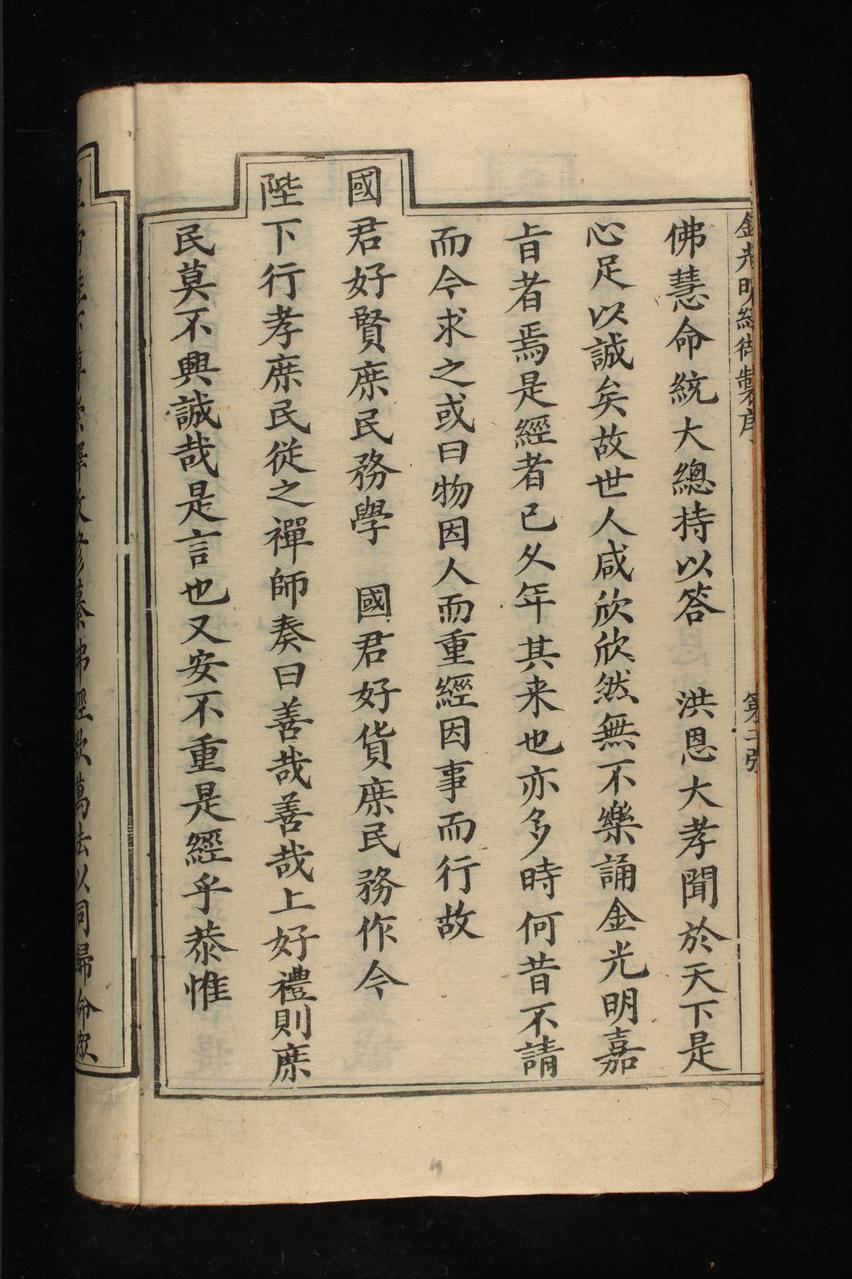 金光明經御製序 第二張
佛慧命統大總持以答 洪恩大孝聞於天下是
心足以誠矣故世人咸欣欣然無不樂誦金光明嘉
㫖者焉是經者已久年其来也亦多時何昔不請
而今求之或曰物因人而重經因事而行故
國君好賢庶民務學 國君好貨庶民務作今
陛下行孝庶民從之禪師奏曰善哉善哉上好禮則庶
民莫不興誠哉是言也又安不重是經乎恭惟
佛經 萬法以同歸